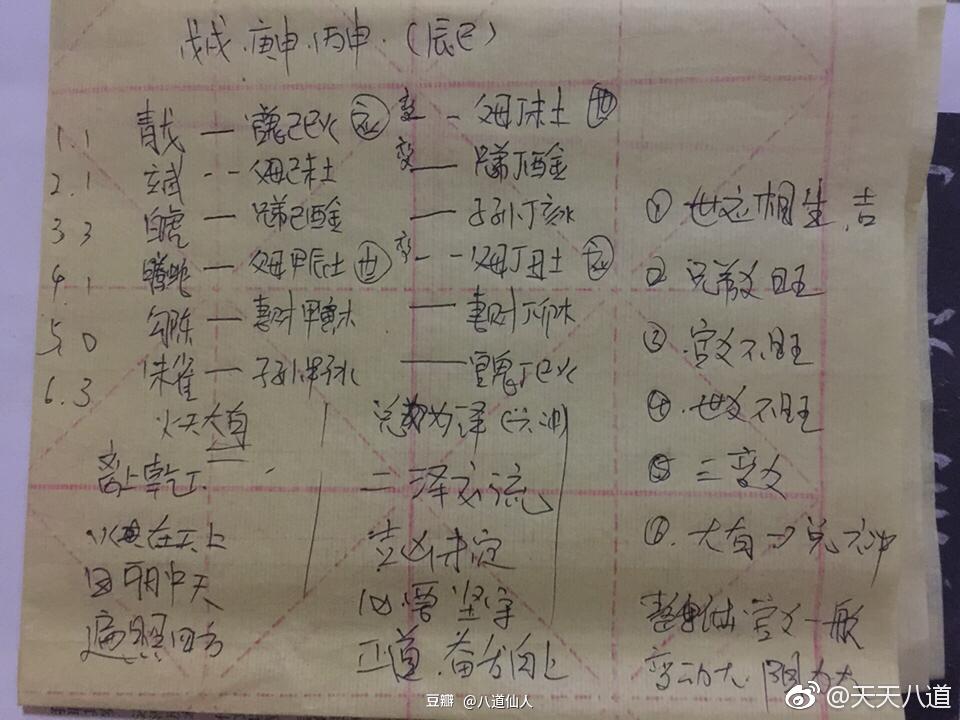 戊戌.庚申.丙申.(辰巳)
1.1 青龙 — 官鬼己巳火 应 变 -- 父母丁未土 世
2.1 玄武 -- 父母己未土 变 — 兄弟丁酉金
3.3 白虎 — 兄弟己酉金 — 子孙丁亥水
4.1 螣蛇 — 父母甲辰土 世 变 -- 父母丁丑土 应
5.0 勾陈 — 妻财甲寅木 — 妻财丁卯木
6.3 朱雀 — 子孙甲子水 — 官鬼丁巳火
火天大有
离上乾下
火 在天上
日 中天
遍照四方
兑为泽(六冲)
二泽交流
吉凶未定
仍需坚守
正道.奋力向上
① 世应相生,吉
② 兄弟爻旺
③ 官爻不旺
④.世爻不旺
⑤ 三变爻
⑥.大有→兑六冲
官爻一般
变动大.阻力大
豆瓣 @八道仙人
@天天八道